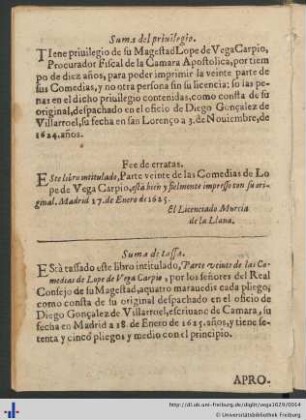 Suma del priuilegio.
TIene priuilegio de su Magestad Lope de Vega Carpio,
Procurador Fiscal de la Camara Apostolica, por tiem
po de diez años, para poder imprimir la veinte parte de
sus Comedias, y no otra persona sin su licencia; so las pe
nas en el dicho priuilegio contenidas, como consta de su
original, despachado en el oficio de Diego Gonçalez de
Villarroel, su fecha en san Lorenço a 3. de Nouiembre, de
1624. años.
Fee de erratas.
ESte libro intitulado, Parte veinte de las Comedias de Lo
pe de Vega Carpio, està bien y fielmente impresso con su ori-
ginal. Madrid 17. de Enero de 1625.
El Licenciado Murcia
de la Llana.
Suma de tassa.
EStà tassado este libro intitulado, Parte veinte de las Co-
medias de Lope de Vega Carpio, por los señores del Real
Consejo de su Magestad, a quatro marauedis cada pliego,
como consta de su original despachado en el oficio de
Diego Gonçalez de Villarroel, escriuano de Camara, su
fecha en Madrid a 18. de Enero de 1625. años, y tiene se-
tenta y cinco pliegos y medio con el principio.
APRO-
http://dl.ub.uni-freiburg.de/diglit/vega1629/0004
© Universitätsbibliothek Freiburg